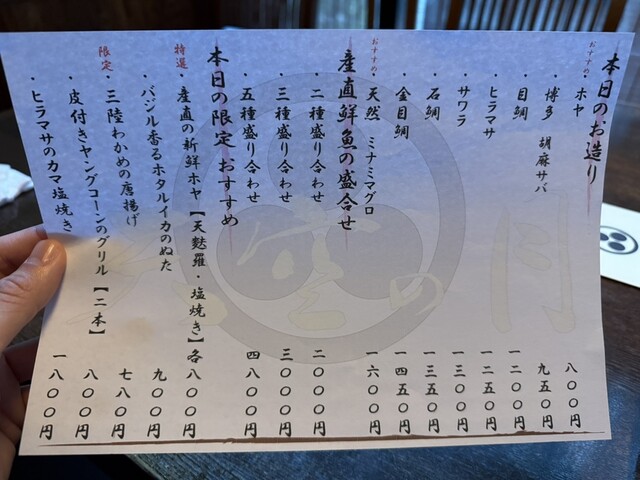 本日のお造り
おすすめ・ホヤ 八〇〇円
・博多 胡麻サバ 九五〇円
・目鯛 一二〇〇円
・ヒラマサ 一二五〇円
・サワラ 一三〇〇円
・石鯛 一三五〇円
・金目鯛 一四五〇円
おすすめ・天然 ミナミマグロ 一六〇〇円
産直鮮魚の盛合せ
・二種盛り合わせ 二〇〇〇円
・三種盛り合わせ 三〇〇〇円
・五種盛り合わせ 四八〇〇円
本日の限定 おすすめ
特選・産直の新鮮ホヤ【天麩羅・塩焼き】各八〇〇円
・バジル香るホタルイカのぬた 九〇〇円
限定・三陸わかめの唐揚げ 七八〇円
・皮付きヤングコーンのグリル【二本】 八〇〇円
・ヒラマサのカマ塩焼き 一八〇〇円